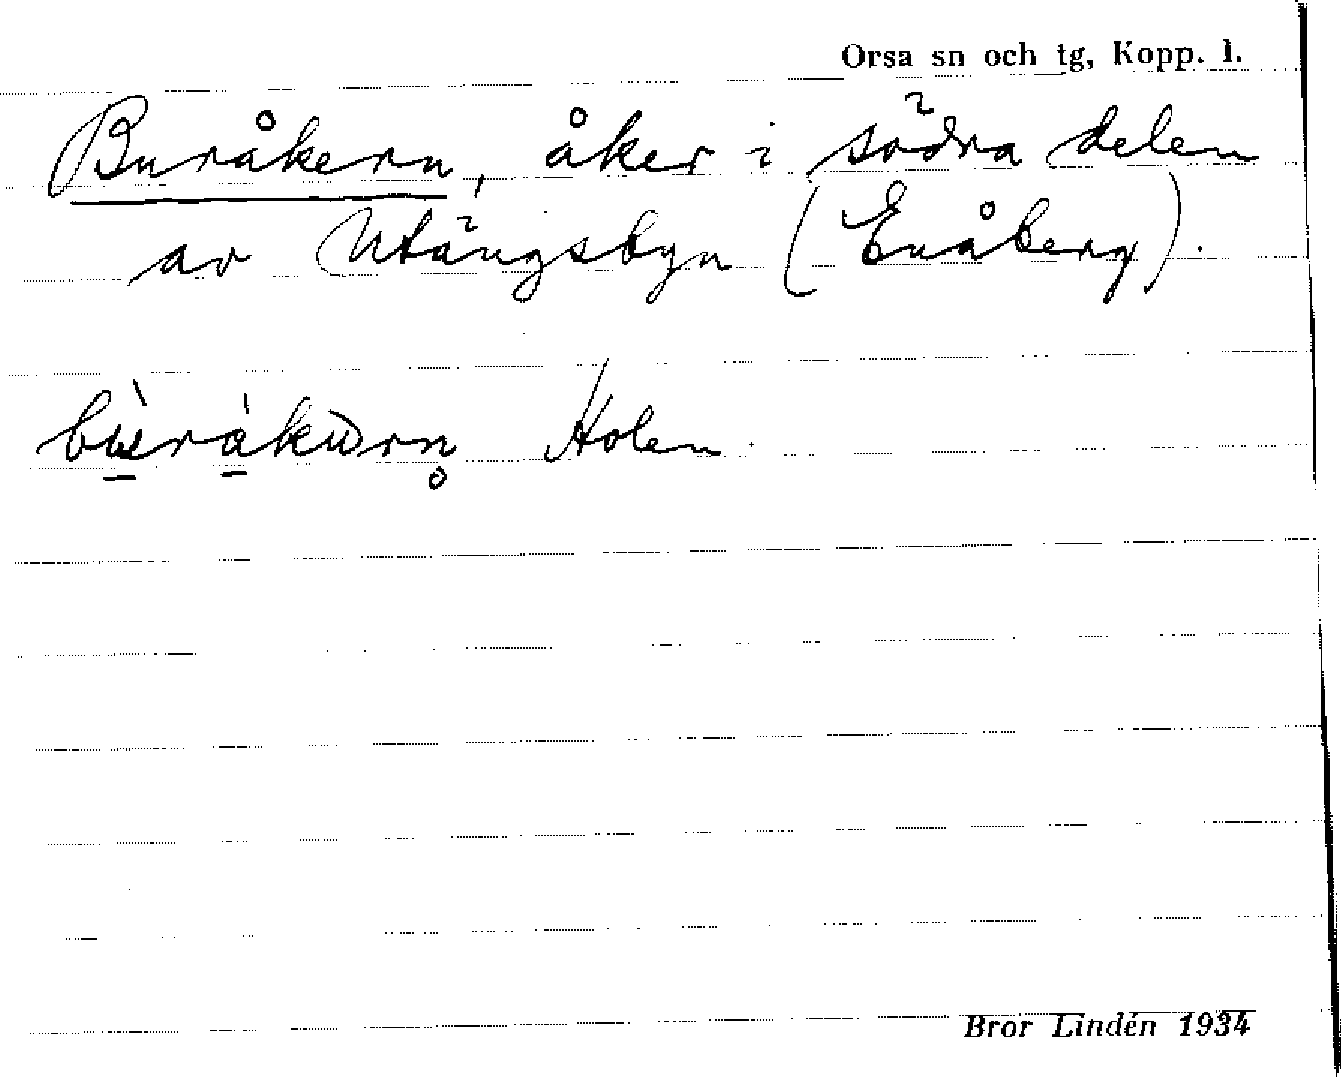 Orsa sn och tg, Kopp. l.
Buråkern, åker i södra delen
av Utängsbyn (Enåberg).
Holen
Bror Lindén 1934